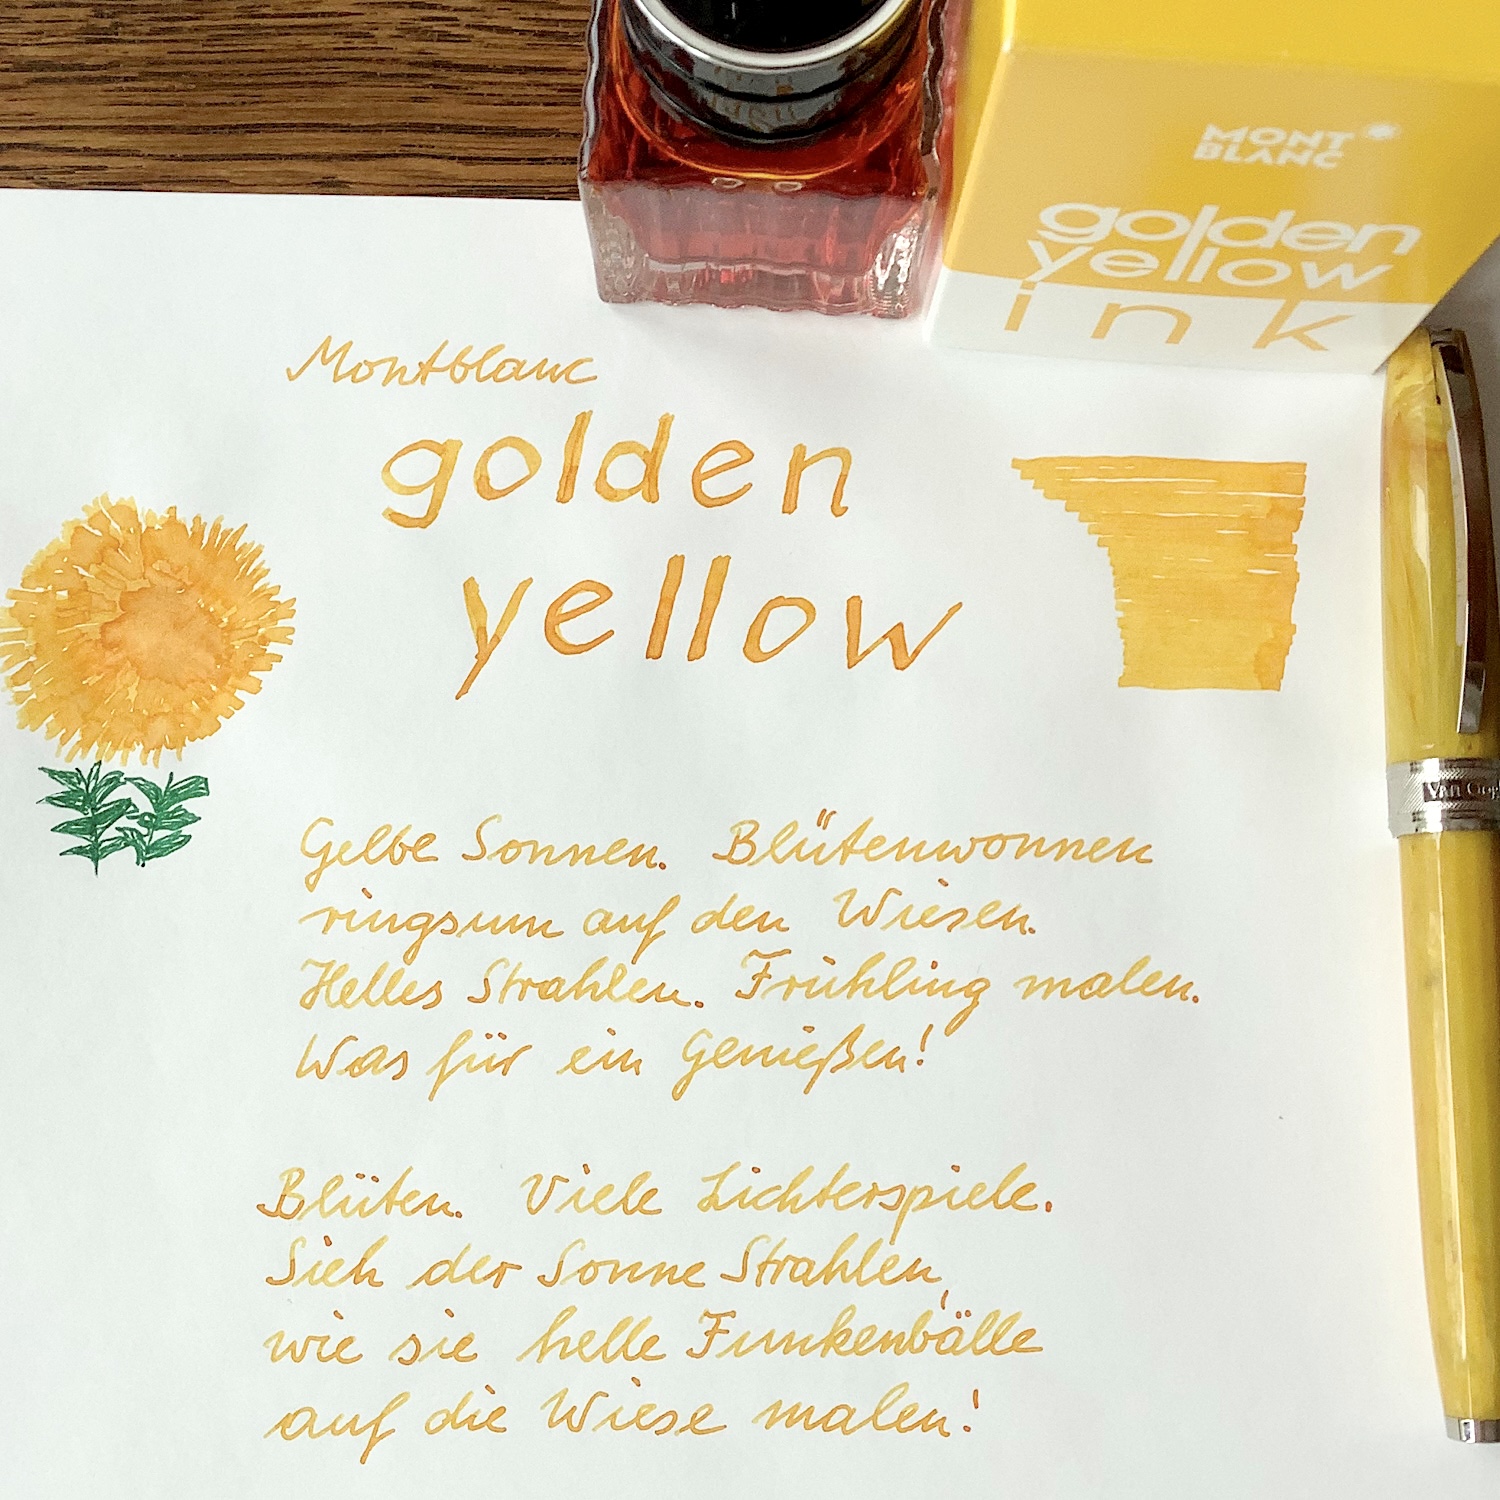 MONT
BLANC
golden
yellow
ink
Montblanc
golden
yellow
Van Gogh
Gelbe Sonnen. Blütenwonnen
ringsum auf den Wiesen.
Helles Strahlen. Frühling malen.
Was für ein Genießen!
Blüten. Viele Lichterspiele.
Sieh der Sonne Strahlen,
wie sie helle Funkenbälle
auf die Wiese malen!